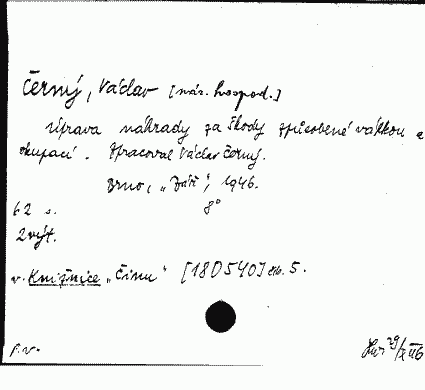 Černý, Václav [nár. hospod.]
Úprava náhrady za škody způsobené válkou a
okupací. Zpracoval Václav Černý.
Brno, „Září“, 1946.
62 s. 8°
2 výt.
v. Knižnice „Činu“ [180540] sv. 5.
p.v.